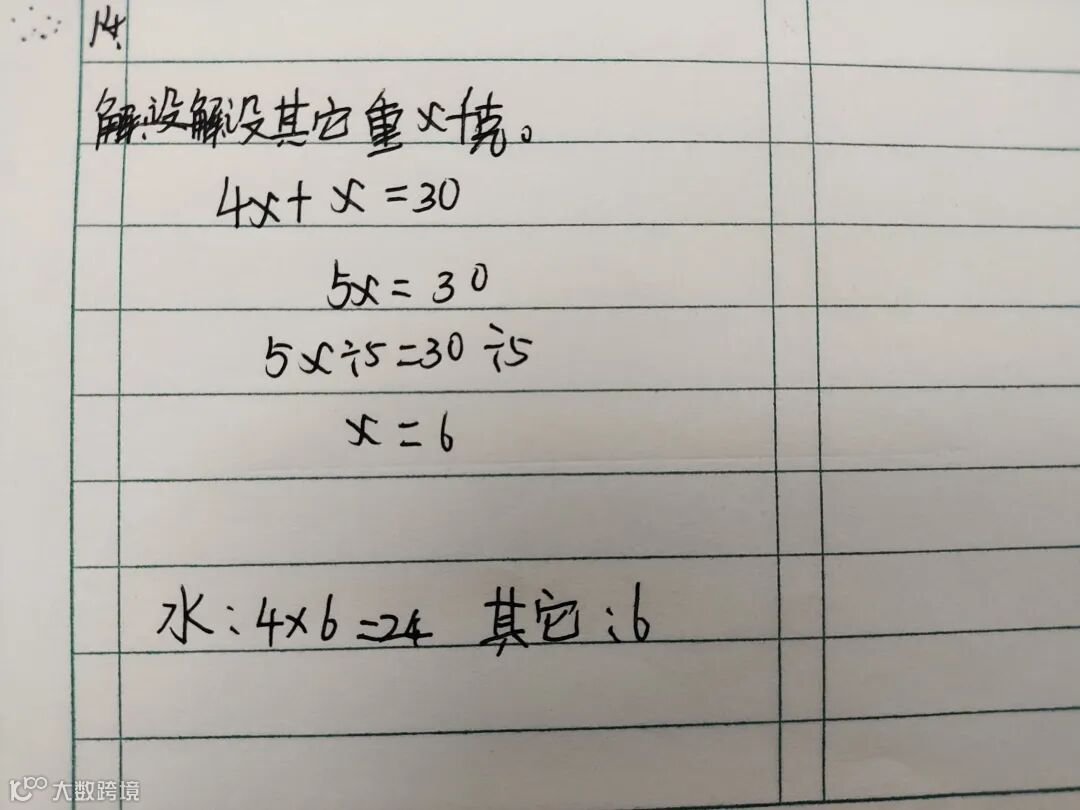 14.
解设解设其它重x千克。
4x+x=30
5x=30
5x÷5=30÷5
x=6
水:4×6=24 其它:6
大数跨境